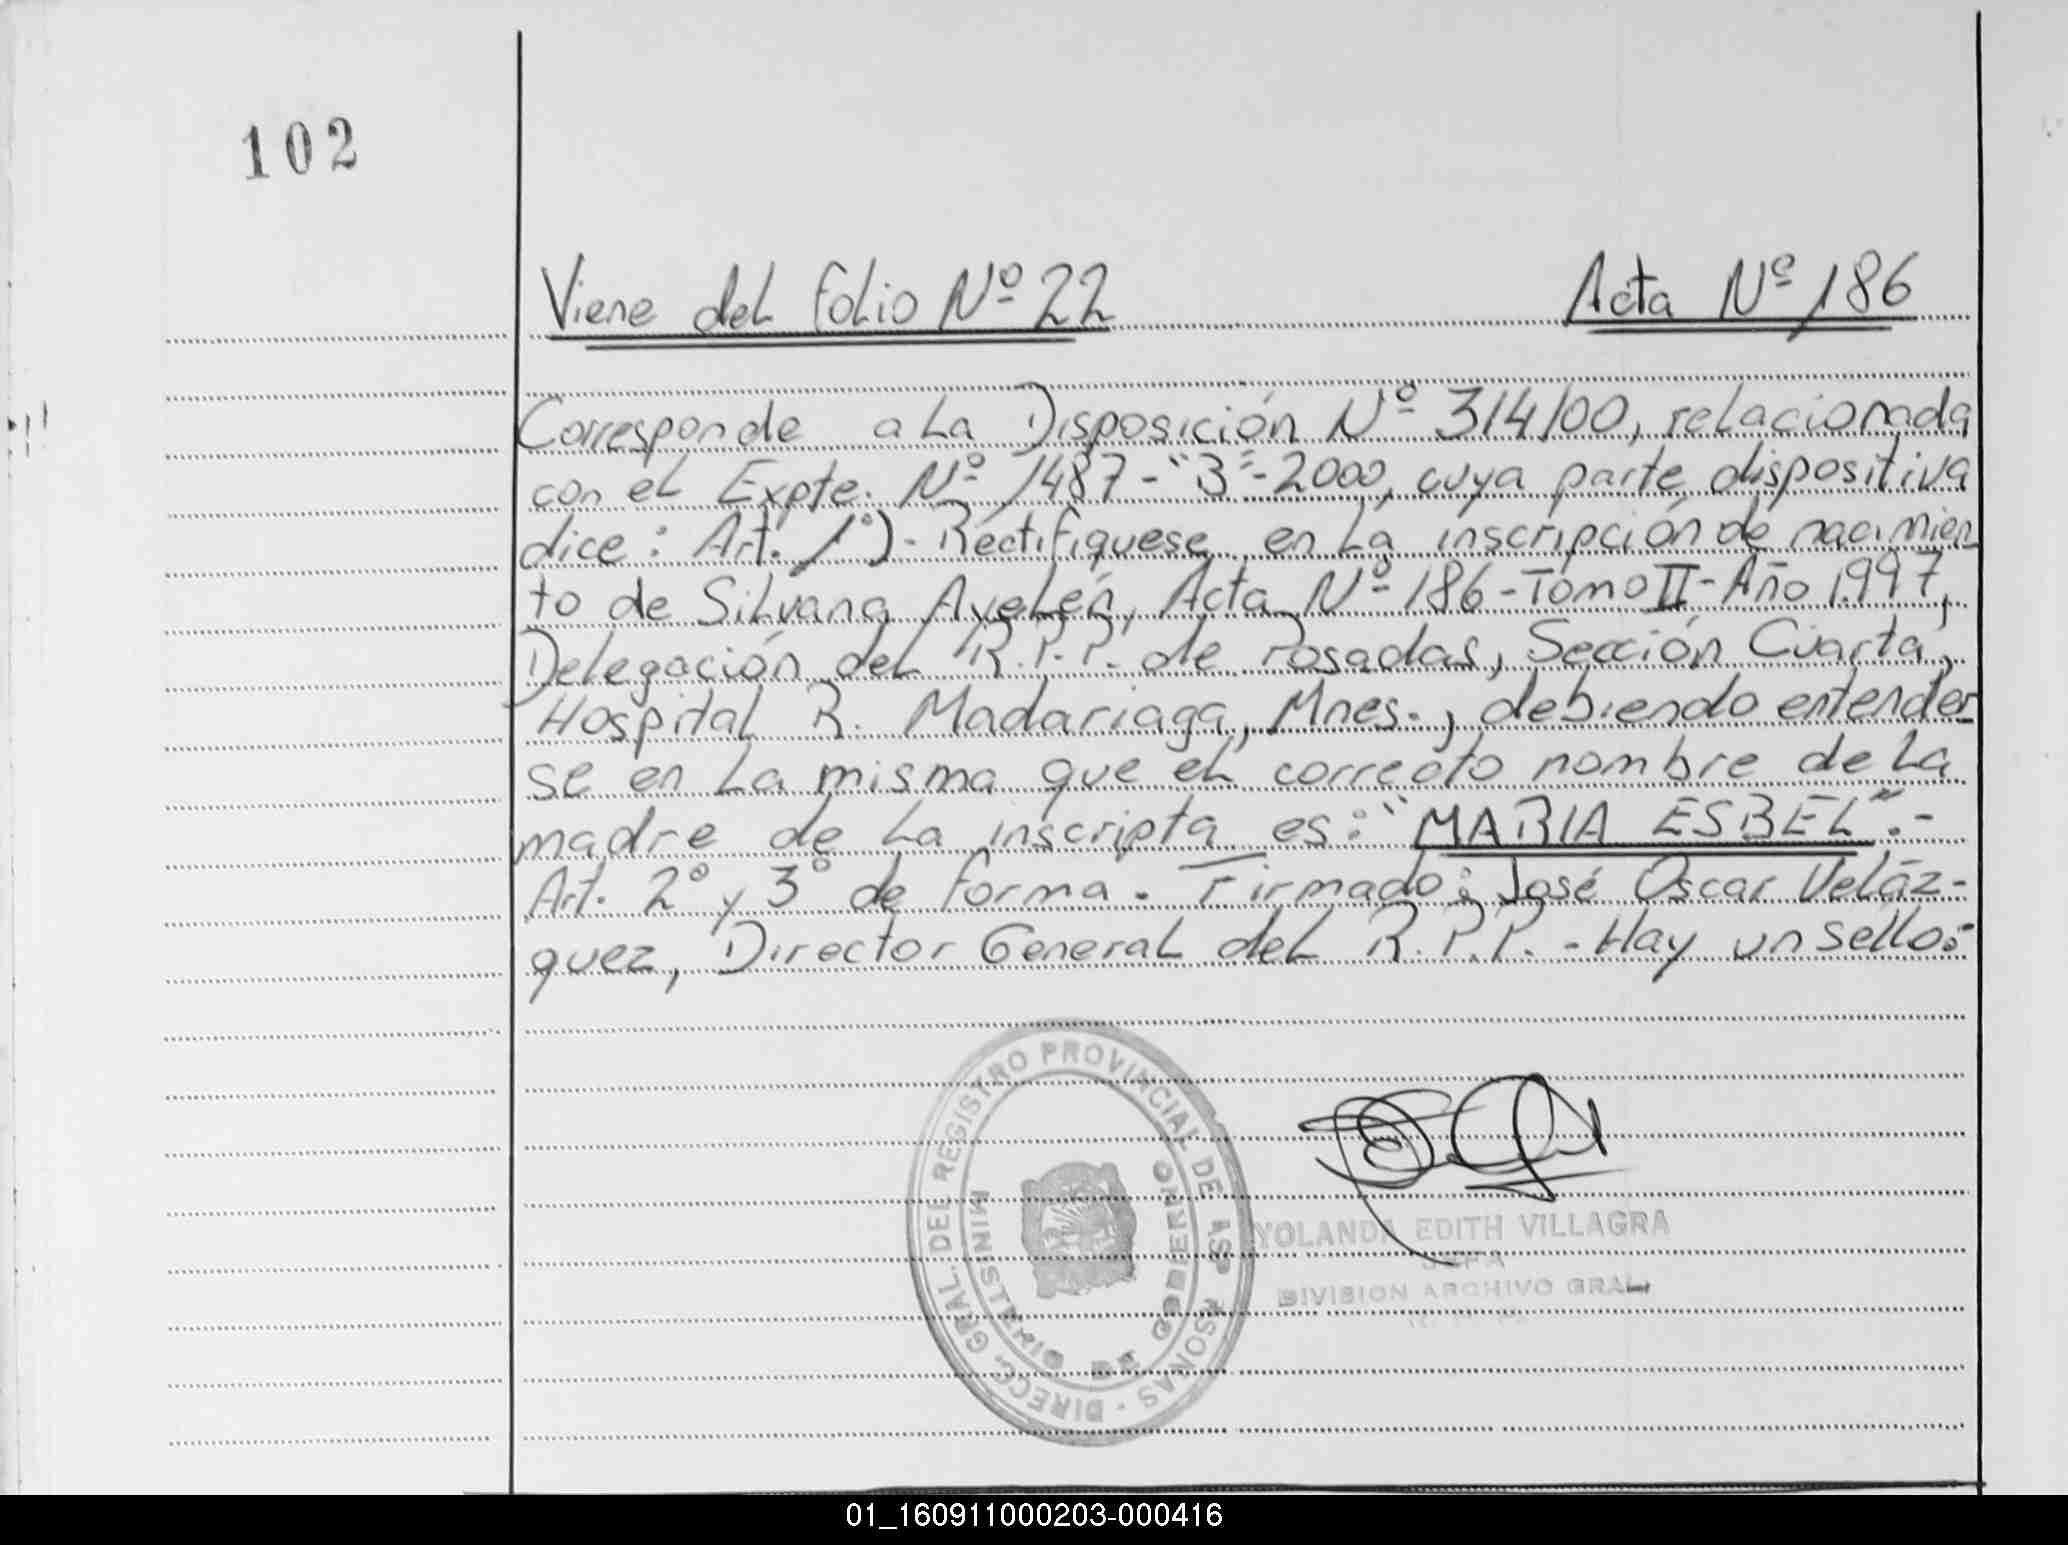 102
Viene del folio Nº 22 Acta Nº 186
Corresponde a la Disposición Nº 314/00, relacionada
con el Expte. Nº 1487-"3"-2000, cuya parte dispositiva
dice: Art. 1º)- Rectifíquese en la inscripción de nacimien
to de Silvana Ayelén, Acta Nº 186-Tomo II-Año 1.997,
Delegación del R.P.P. de Posadas, Sección Cuarta,
Hospital R. Madariaga, Mnes., debiendo entender
se en la misma que el correcto nombre de la
madre de la inscripta es: "MARIA ESBEL".-
Art. 2º y 3º de forma. Firmado: José Oscar Veláz-
quez, Director General del R.P.P. - Hay un sello:-
DIRECC. GRAL. DEL REGISTRO PROVINCIAL DE LAS PERSONAS
MINISTERIO DE GOBIERNO
YOLANDA EDITH VILLAGRA
JEFA
DIVISION ARCHIVO GRAL.
01_160911000203-000416